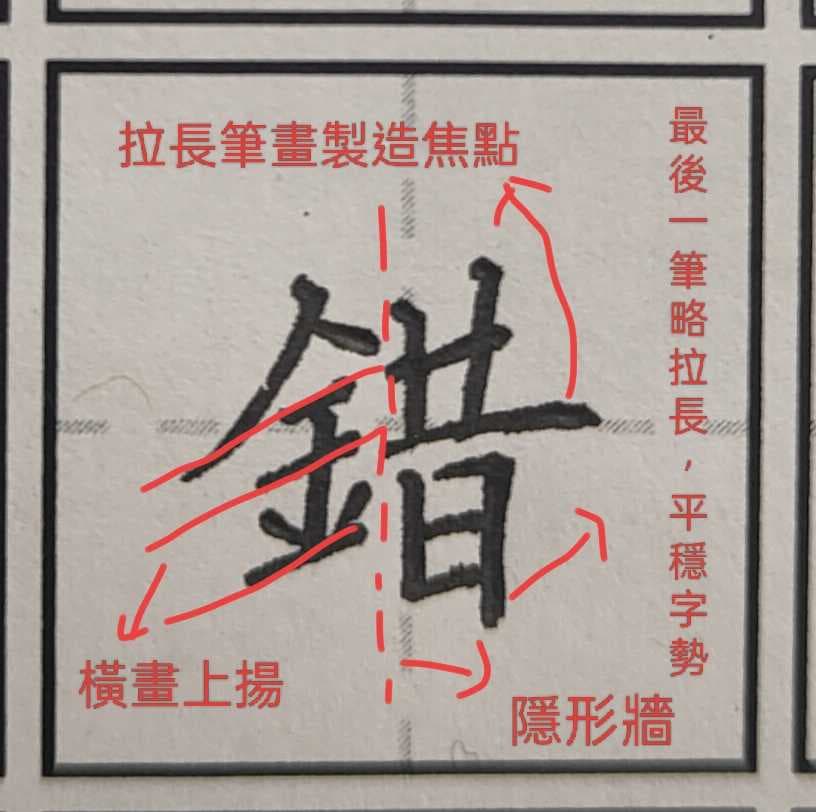 拉長筆畫製造焦點
最後一筆略拉長，平穩字勢
錯
橫畫上揚
隱形牆